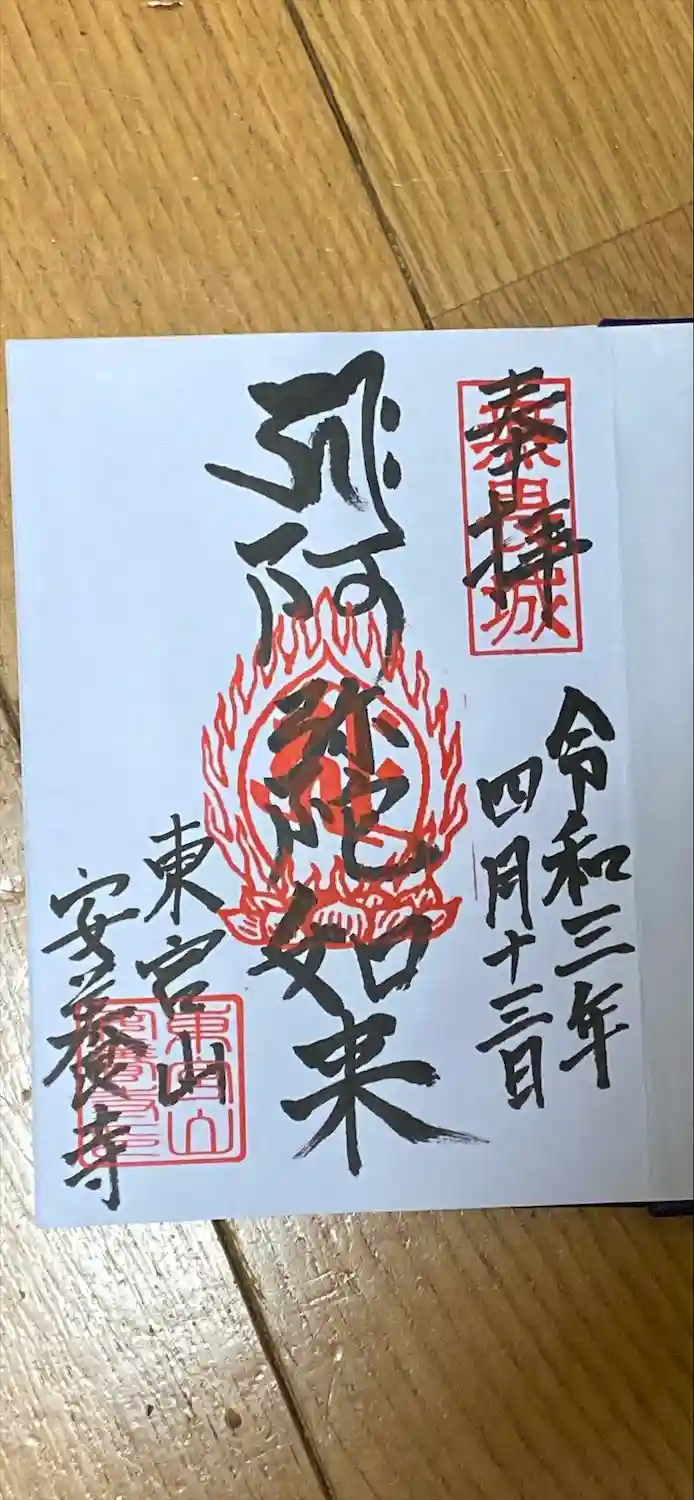 奉拝
令和三年
四月十三日
阿弥陀如来
東宮山
安養寺
東宮山